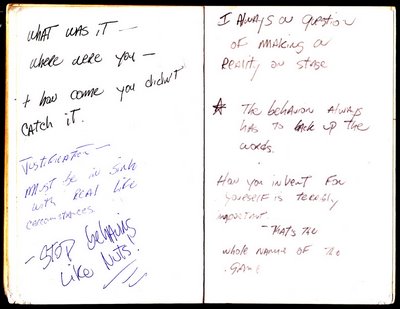 WHAT WAS IT —
where were you —
+ how come you didn't
CATCH IT.
Justification —
must be in sink
with REAL life
circumstances.
- STOP behaving
like Nuts!
I Always a question
OF MAKING a
REALITY on stage
★ The behavior Always
has to back up the
words.
How you invent For
yourself is terribly
important.
- That's the
whole name of the
GAME